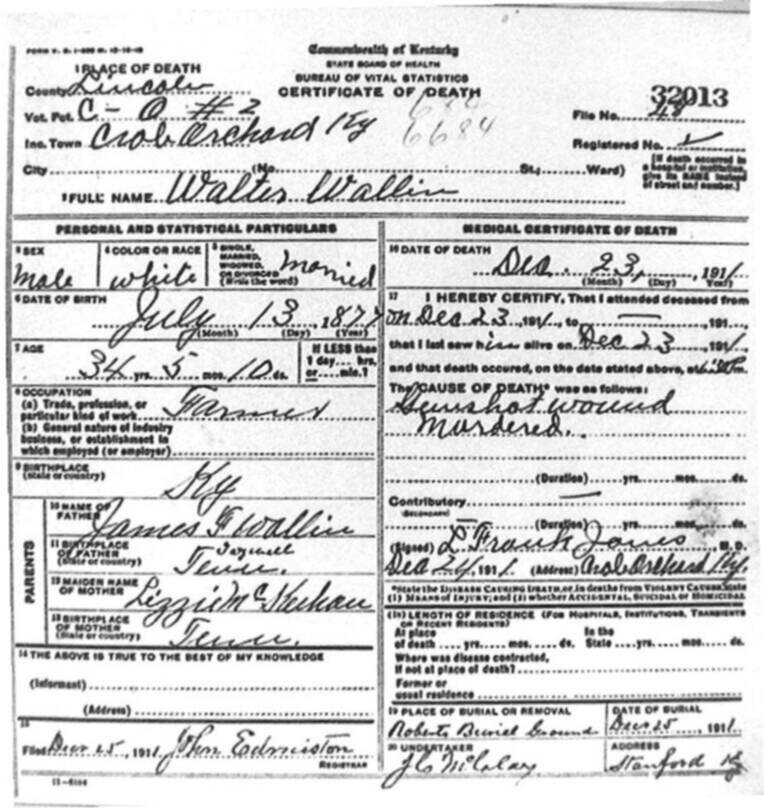 Commonwealth of Kentucky
STATE BOARD OF HEALTH
BUREAU OF VITAL STATISTICS
CERTIFICATE OF DEATH
1 PLACE OF DEATH
County Lincoln
Vot. Pct. C - O #2
Inc. Town Crab Orchard Ky
684
6684
32013
File No. 48
Registered No.
[If death occurred in a hospital or institution, give its NAME instead of street and number.]
City (No. St.; Ward)
2 FULL NAME Walter Wallin
PERSONAL AND STATISTICAL PARTICULARS
3 SEX
Male
4 COLOR OR RACE
white
5 SINGLE, MARRIED, WIDOWED, OR DIVORCED (Write the word)
Married
6 DATE OF BIRTH
July 13, 1877
(Month) (Day) (Year)
7 AGE
34 yrs. 5 mos. 10 ds.
If LESS than 1 day... hrs. or... min.?
8 OCCUPATION
(a) Trade, profession, or particular kind of work Farmer
(b) General nature of industry business, or establishment in which employed (or employer)
9 BIRTHPLACE
(State or country) Ky
PARENTS
10 NAME OF FATHER James F Wallin
11 BIRTHPLACE OF FATHER (State or country) Tazwell Tenn.
12 MAIDEN NAME OF MOTHER Lizzie
13 BIRTHPLACE OF MOTHER (State or country) Tenn.
14 THE ABOVE IS TRUE TO THE BEST OF MY KNOWLEDGE
(Informant)
(Address)
15
Filed Dec 25, 1911 John Edmiston
REGISTRAR
MEDICAL CERTIFICATE OF DEATH
16 DATE OF DEATH
Dec. 23, 1911
(Month) (Day) (Year)
17 I HEREBY CERTIFY, That I attended deceased from
on Dec 23, 1911, to — , 191
that I last saw him alive on Dec 23, 1911
and that death occured, on the date stated above, at
The CAUSE OF DEATH* was as follows:
Gunshot wound
Murdered.
(Duration) yrs. mos. ds.
Contributory —
(SECONDARY)
(Duration) yrs. mos. ds.
(Signed) L Frank Jones M. D.
Dec 24, 1911 (Address) Crab Orchard Ky.
*State the DISEASE CAUSING DEATH, or, in deaths from VIOLENT CAUSES, state (1) MEANS OF INJURY; and (2) whether ACCIDENTAL, SUICIDAL or HOMICIDAL
18 LENGTH OF RESIDENCE (FOR HOSPITALS, INSTITUTIONS, TRANSIENTS OR RECENT RESIDENTS)
At place of death yrs. mos. ds. In the State yrs. mos. ds.
Where was disease contracted, if not at place of death?
Former or usual residence
19 PLACE OF BURIAL OR REMOVAL
Roberts Burial Ground
DATE OF BURIAL
Dec 25, 1911
20 UNDERTAKER
J C McClary
ADDRESS
Stanford Ky